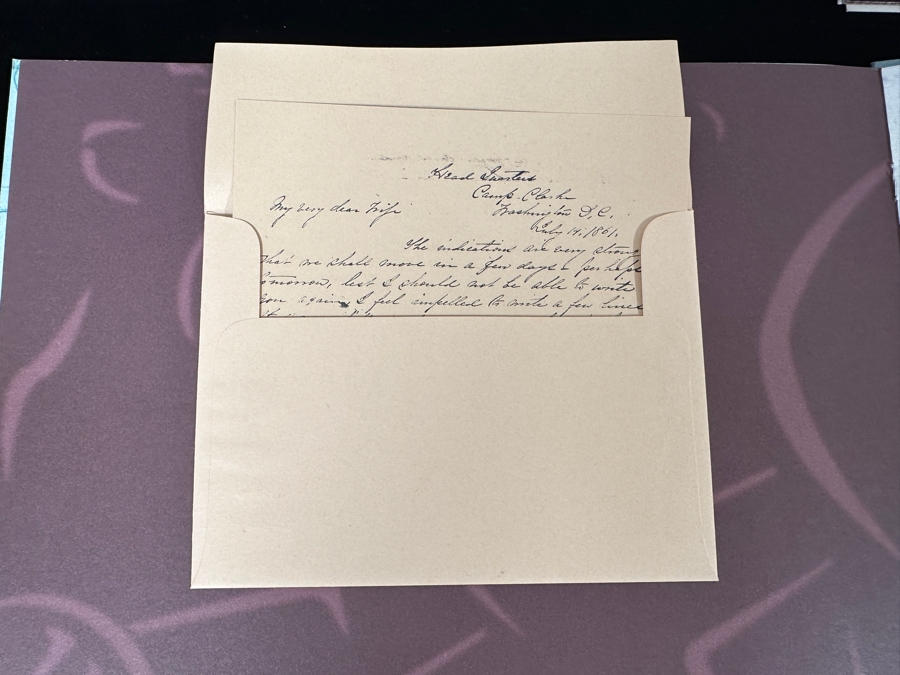 Head Quarters
Camp Clarke
Washington D.C.
July 14, 1861,
My very dear Wife
The indications are very strong
that we shall move in a few days - perhaps
omorrow, lest I should not be able to write
you again I feel impelled to write a few lines